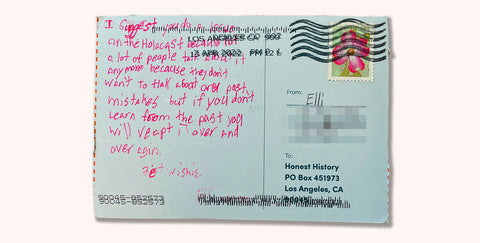 I Suggest you do a issue
on the Holacast because not
a lot of people talk about it
anymore because they don't
want to ttak about are past
mistakes but if you don't
learn from the past you
will reapt i over and
over agin.
Best wishis
LOS ANGELES CA 900
13 APR 2022 PM
From:
Elli
To:
Honest History
PO Box 451973
Los Angeles, CA
90045-852573
90045-852573